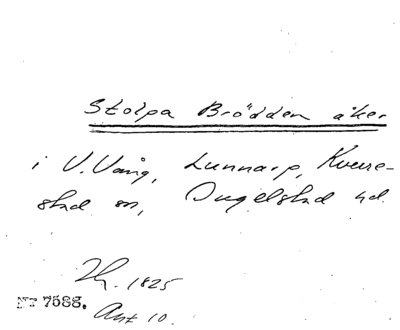 Stolpa Brödden åker
i V. Vång, Lunnarp, Kverre-
stad sn, Ingelstad hd.
1825
Nr 7588.
Akt 10.